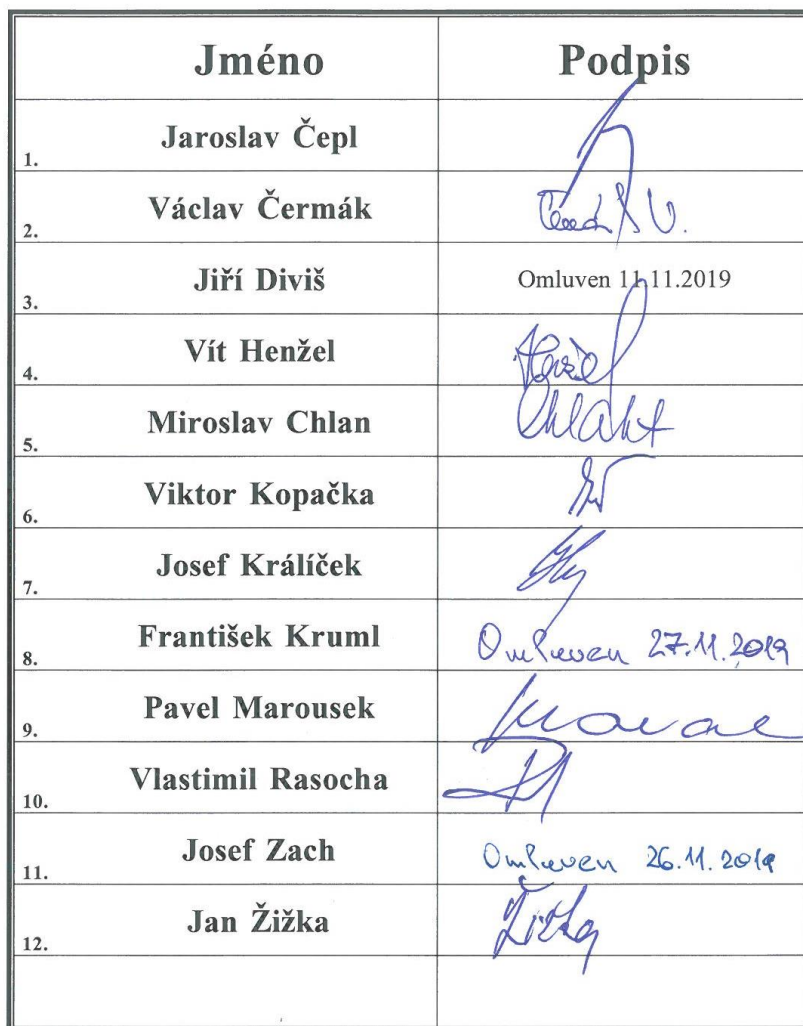 Jméno Podpis
1. Jaroslav Čepl
2. Václav Čermák
3. Jiří Diviš Omluven 11.11.2019
4. Vít Henžel Henžel
5. Miroslav Chlan
6. Viktor Kopačka
7. Josef Králíček
8. František Kruml Omluven 27.11.2019
9. Pavel Marousek
10. Vlastimil Rasocha
11. Josef Zach Omluven 26.11.2019
12. Jan Žižka Žižka